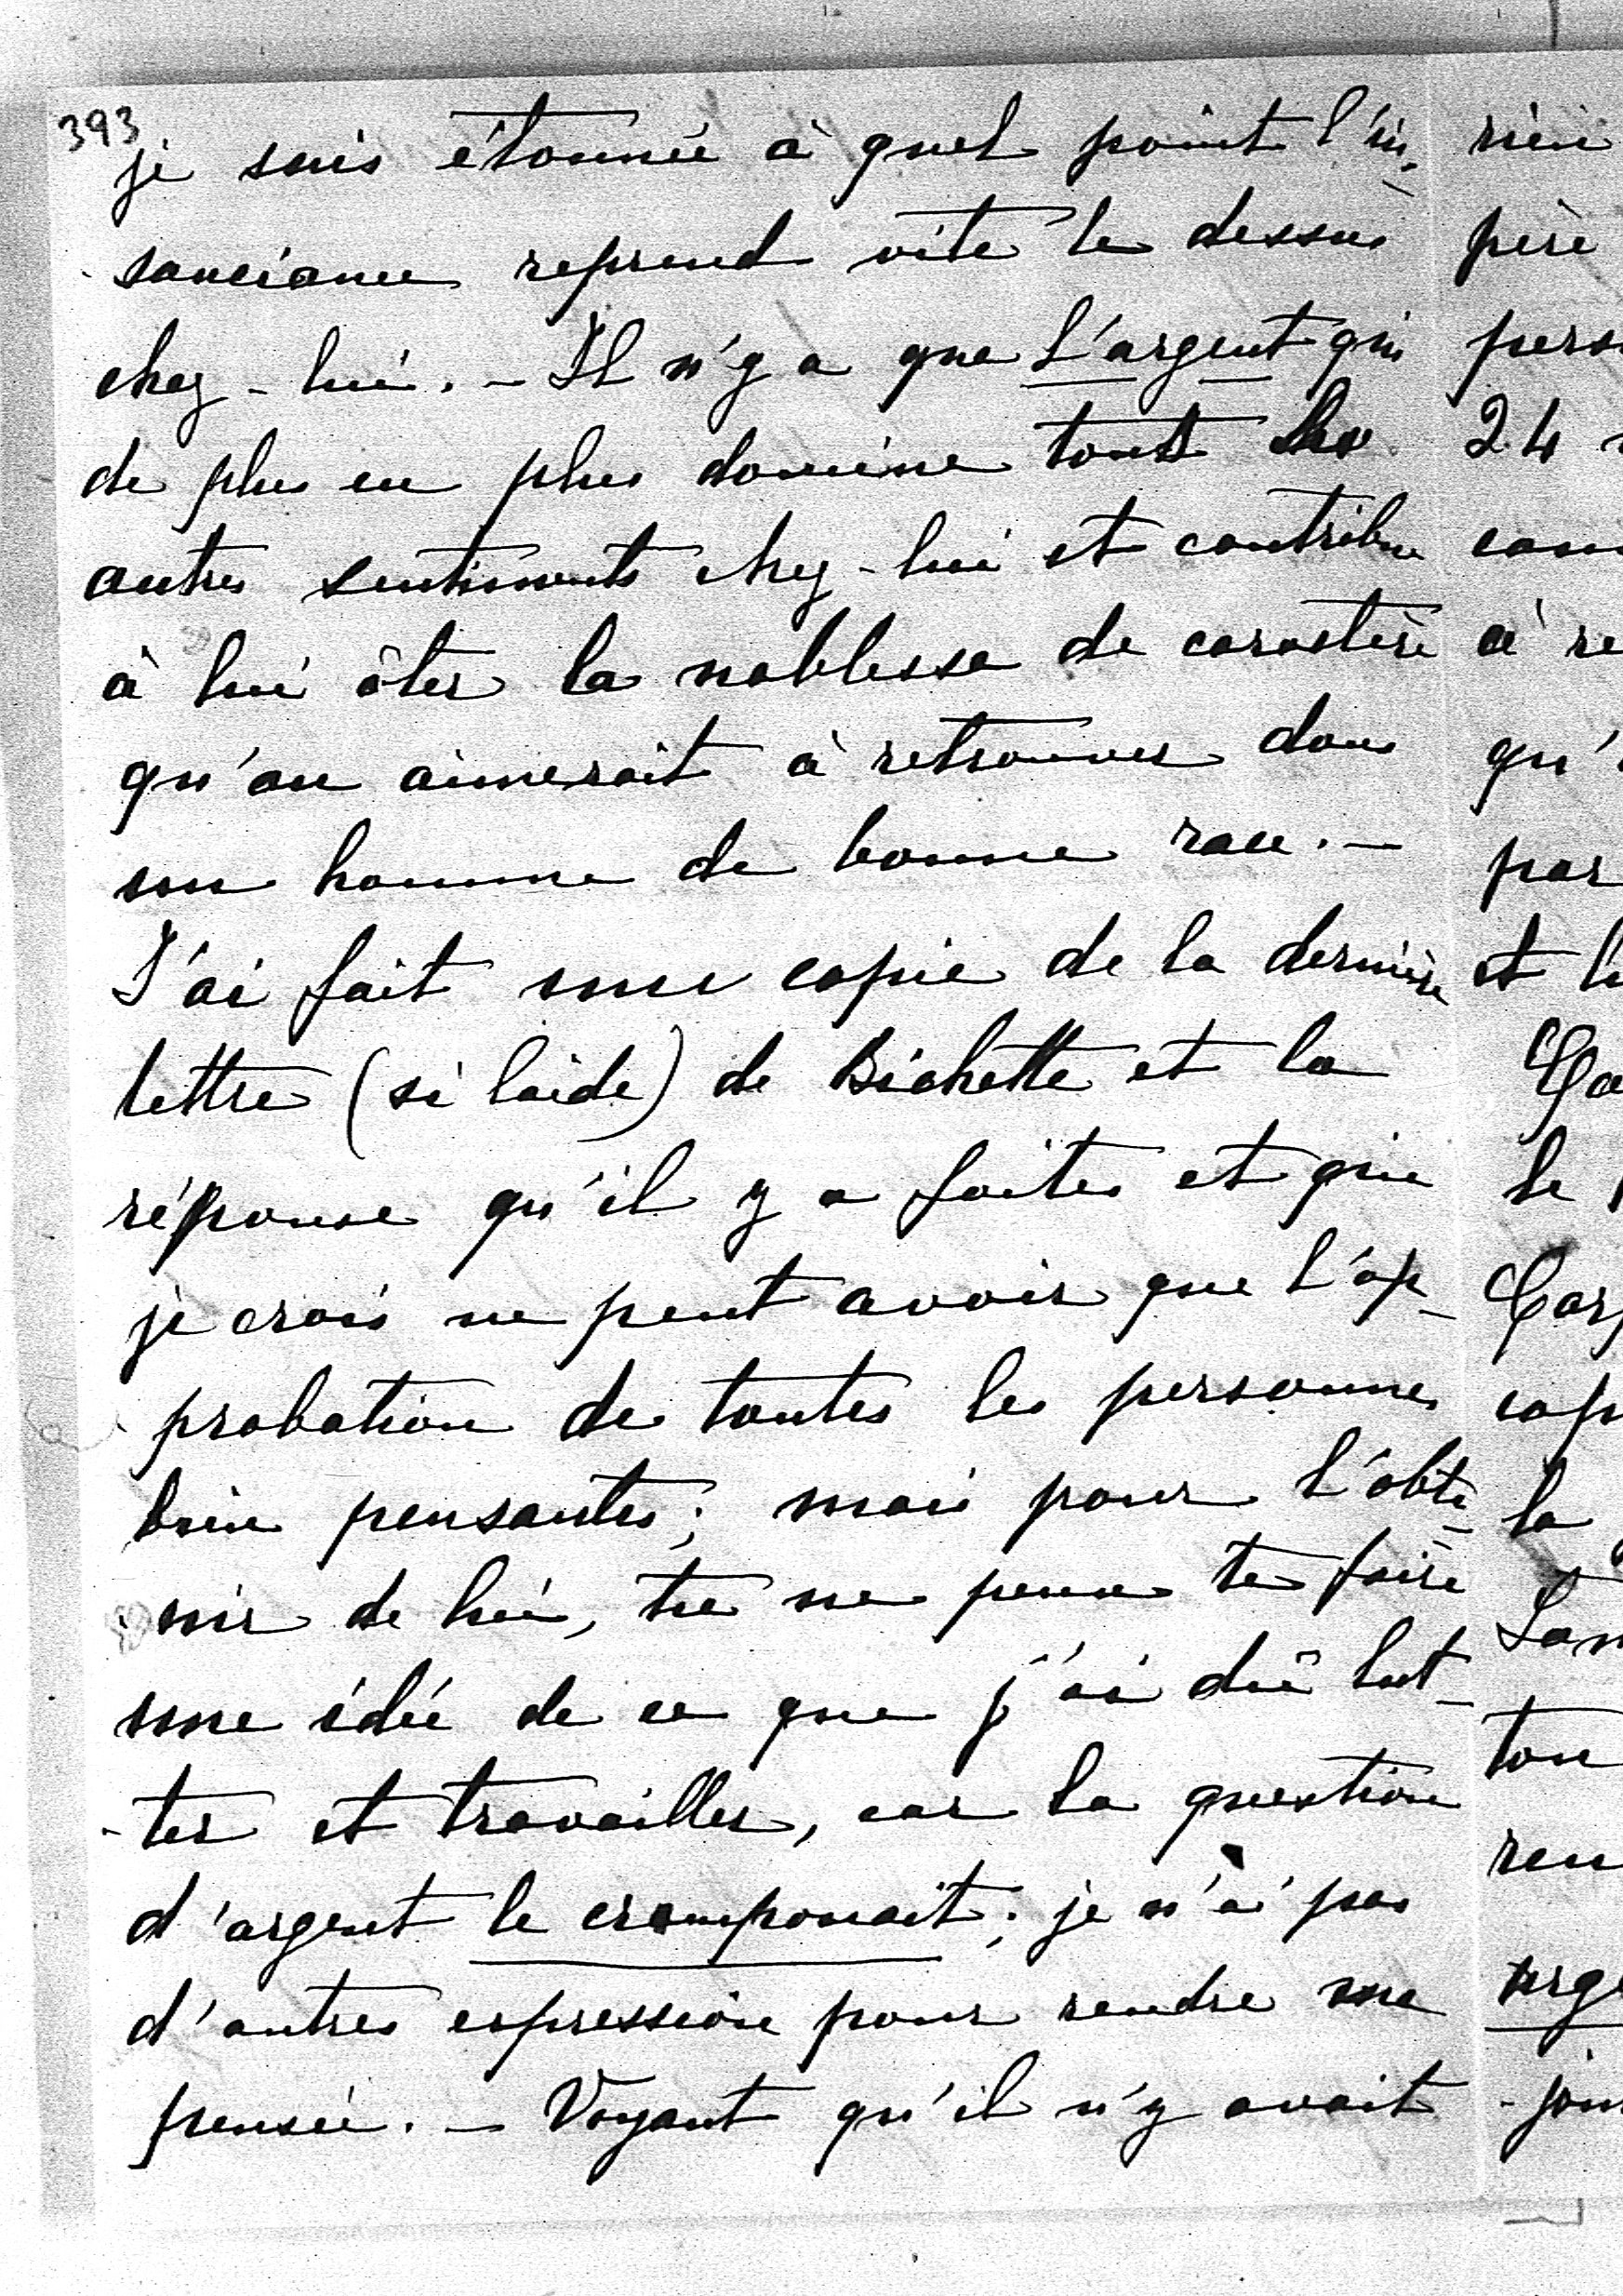 393
je suis étonnée à quel point l'in-
souciance reprend vite le dessus
chez-lui. - Il n'y a que l'argent qui
de plus en plus domine tous les
autres sentiments chez-lui et contribue
à lui ôter la noblesse de caractère
qu'on aimerait à retrouver dans
un homme de bonne race. -
J'ai fait une copie de la dernière
lettre (si laide) de Bichette et la
réponse qu'il y a faites et qui
je crois ne peut avoir que l'ap-
probation de toutes les personnes
bien pensantes; mais pour l'obte-
nir de lui, tu ne peux te faire
une idée de ce que j'ai dû lut-
-ter et travailler, car la question
d'argent le cramponait; je n'ai pas
d'autres expression pour rendre ma
pensée. - Voyant qu'il n'y avait
rien
père
pers
24
com
à re
qu'
par
et
le
cap
la
ton
ren
-jou